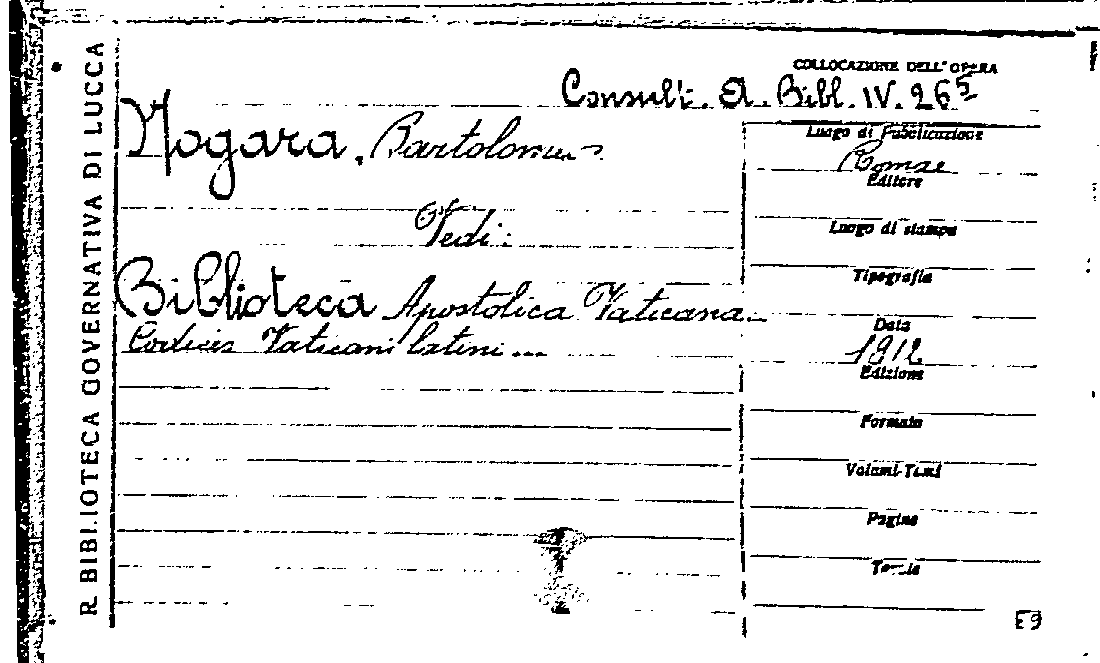 R. BIBLIOTECA GOVERNATIVA DI LUCCA
COLLOCAZIONE DELL'OPERA
Consult. A. Bibl. IV. 26⁵
Nogara, Bartolomeus
Luogo di Pubblicazione
Romae
Editore
Vedi:
Luogo di stampa
Tipografia
Biblioteca Apostolica Vaticana.
Data
Codices Vaticani latini...
1912
Edizione
Formato
Volumi-Tomi
Pagine
E9